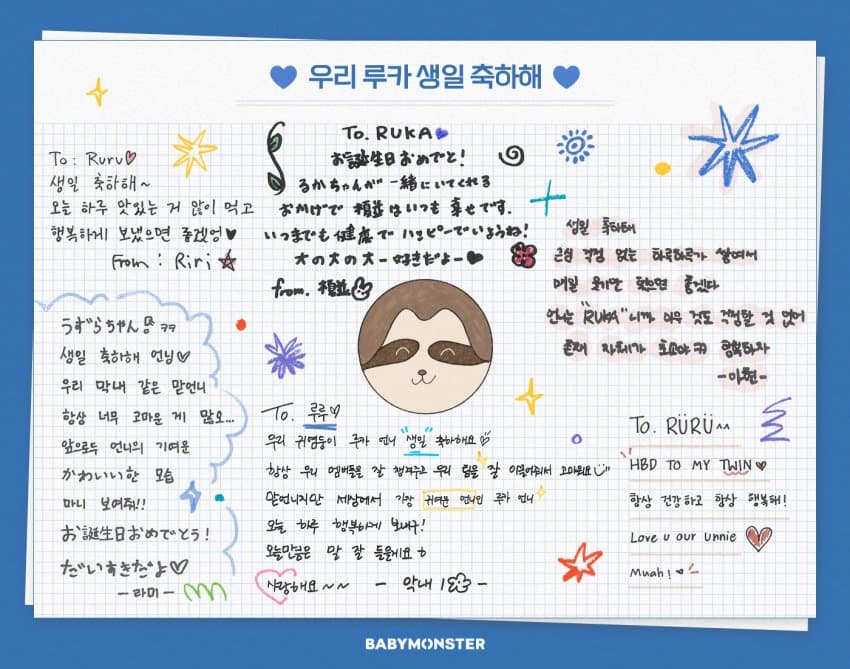 우리 루카 생일 축하해
To: Ruru
생일 축하해~
오늘 하루 맛있는 거 많이 먹고
행복하게 보냈으면 좋겠엉♥
From : Riri
To. RUKA
お誕生日おめでと!
るかちゃんが一緒にいてくれる
おかげで 頼並はいつも 幸せです.
いつまでも健康で ハッピーでいようね!
大の大の大ー好きだよー♥
from. 頼並
생일 축하해
근심 걱정 없는 하루하루가 쌓여서
매일 웃기만 했으면 좋겠다
언니는 "RUKA"니까 아무 것도 걱정할 것 없어
존재 자체가 최고야ㅋㅋ 행복하자
-아현-
うずらちゃん ㅋㅋ
생일 축하해 언닝♡
우리 막내 같은 맏언니
항상 너무 고마운 게 많오...
앞으로두 언니의 기여운
かわいい한 모습
마니 보여줘!!
お誕生日おめでとう!
だいすきだよ♡
-라미-
To. 루루♡
우리 귀염둥이 루카 언니 "생일" 축하해요
항상 우리 멤버들을 잘 챙겨주고 우리 팀을 잘 이끌어줘서 고마워요
맏언니지만 세상에서 가장 귀여운 언니인 루카 언니
오늘 하루 행복하게 보내구!
오늘만큼은 말 잘 들을게요
사랑해요~~ - 막내
To. RÜRÜ^^
HBD TO MY TWIN♥
항상 건강하고 항상 행복해!
Love u our unnie
Muah!
BABYMONSTER